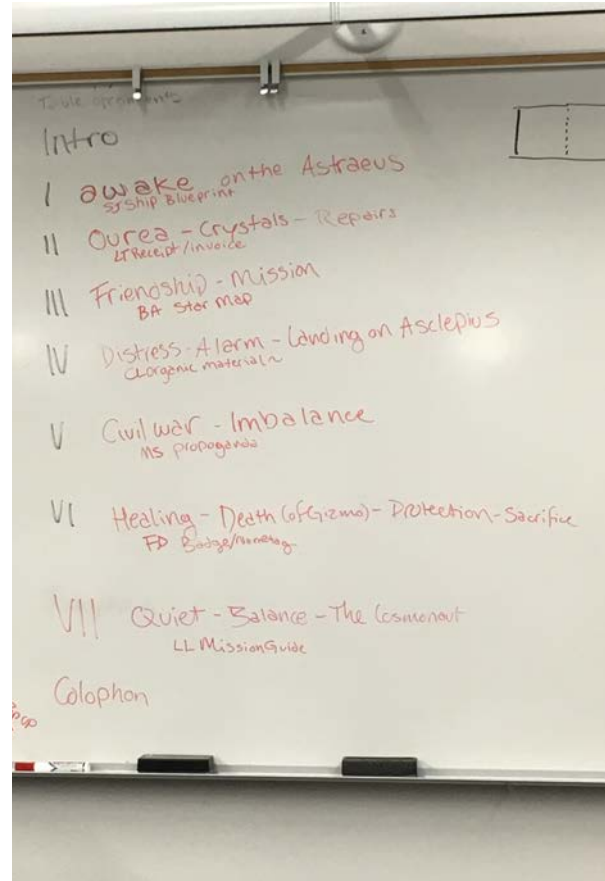 Table of contents
Intro
I awake on the Astraeus
SJ Ship Blueprint
II Ourea - Crystals - Repairs
LT Receipt/invoice
III Friendship - Mission
BA Star Map
IV Distress - Alarm - Landing on Asclepius
CL organic material
V Civil war - Imbalance
MS propoganda
VI Healing - Death (of Gizmo) - Protection - Sacrifice
FD Badge/nametag
VII Quiet - Balance - The Cosmonaut
LL Mission Guide
Colophon